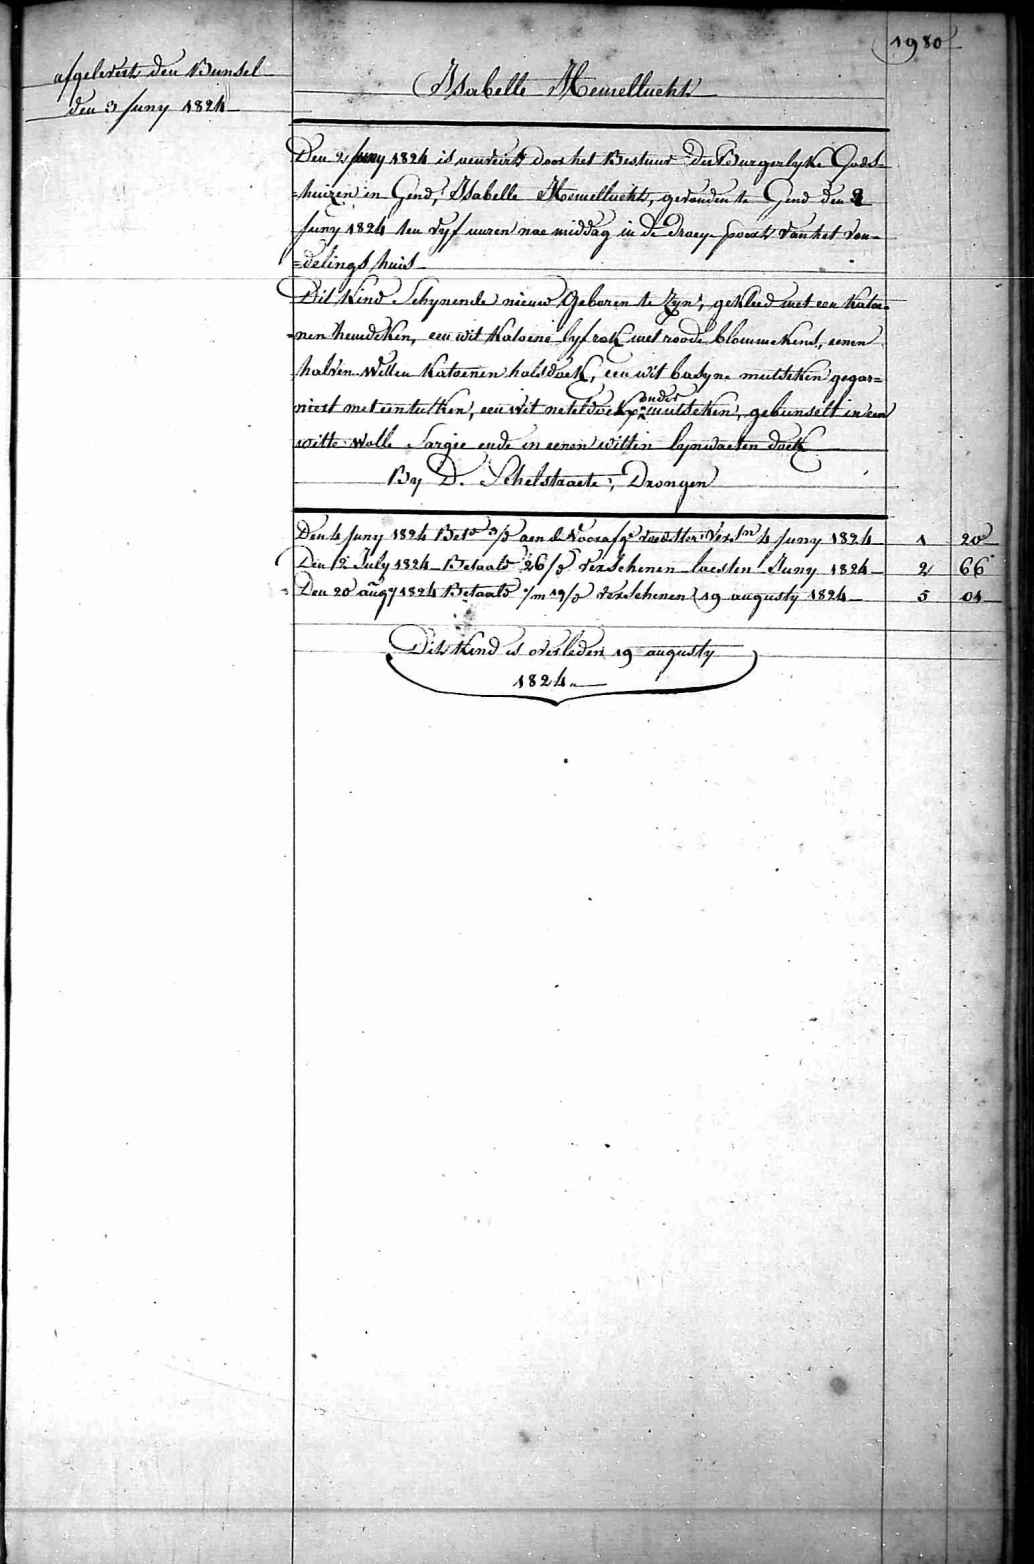 1980
afgelevert den Bunsel
den 3 Juny 1824
Isabelle Hemellucht
Den 2 Juny 1824 is aenveird door het Bestuur der Burgerlyke Gods=
=huizen in Gend, Isabelle Hemellucht, gevonden te Gend den 2
Juny 1824 ten vyf uuren nae middag in de draey-poort van het von=
=delings huis
Dit Kind Schynende nieuw Geboren te Zyn, gekleed met een katoe=
=nen hemdeken, een wit katoene lyfrok met roode blommekens, eenen
halven Witten katoenen halsdoek, een wit basyne mutseken gegar=
niert met een tulken, een wit neteldoek onder mutseken, gebunselt in een
witte wolle Sargie ende in eenen witten lynwaeten doek
By D. Schelstraete, Drongen
Den 4 Juny 1824 Bet.d 3/3 aen de Voorafg.e 4 Juny 1824 1 20
Den 12 July 1824 Betaald 26/3 verschenen laesten Juny 1824 2 66
Den 20 augy 1824 Betaald 1/m 19/3 verschenen 19 augusty 1824 5 01
Dit Kind is overleden 19 augusty
1824